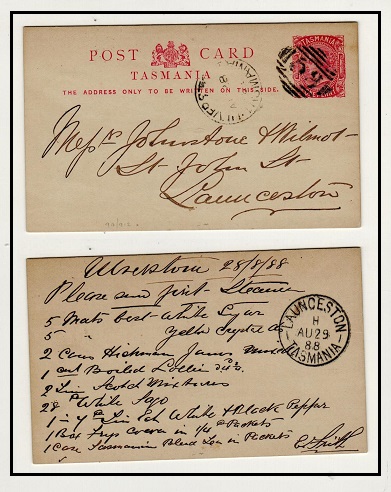 POST CARD
TASMANIA
THE ADDRESS ONLY TO BE WRITTEN ON THIS SIDE.
TASMANIA
Messrs Johnstone & Wilmot
St. John St
Launceston
Ulverstone 28/8/88
Please send first Steamer
5 Mats best White Sugar
5 " Yellow Crystal do
2 Cans Hickman Jams Mixed
1 cwt Boiled Lollies
2 Tins Scotch Mixtures
28 lb White Sago
1 - 7 lb Tin Each White & Black Pepper
1 Box Frys Cocoa in 1/4 lb Packets
1 Case Tasmanian Blend Tea in Packets
LAUNCESTON
H
AU 29
88
TASMANIA